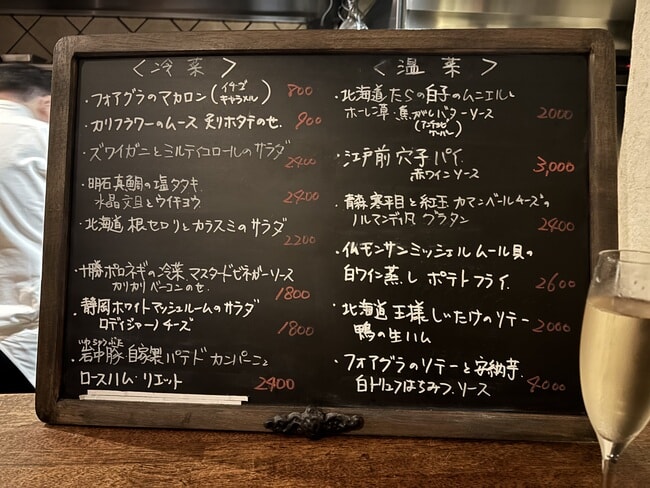 <冷菜>
・フォアグラのマカロン(イチゴ キャラメル) 800
・カリフラワーのムース 炙りホタテのせ. 900
・ズワイガニとミルティコロールのサラダ 2400
・明石真鯛の塩タタキ.
水晶文旦とウイキョウ 2400
・北海道 根セロリとカラスミのサラダ
2200
・十勝ポロネギの冷菜 マスタードビネガーソース
カリカリベーコンのせ. 1800
・静岡ホワイトマッシュルームのサラダ
ロディジャーノチーズ 1800
いわちゅうぶた
・岩中豚 自家製 パテドカンパーニュ
ロースハム・リエット 2400
<温菜>
・北海道たらの白子のムニエルと
ホーレン草 焦がしバターソース 2000
(アンチョビ
・江戸前 穴子パイ.
赤ワインソース 3,000
・青森 寒平目と紅玉 カマンベールチーズの
ノルマンディ風 グラタン 2400
・仏モンサンミッシェル ムール貝の
白ワイン蒸し ポテトフライ. 2600
・北海道 王様しいたけのソテー
鴨の生ハム 2000
・フォアグラのソテーと安納芋.
白トリュフはちみつ.ソース 4000